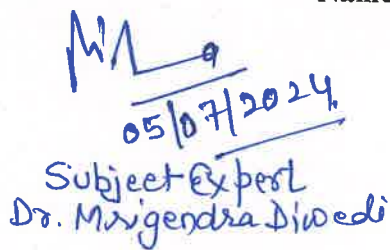 05/07/2024
Subject Expert
Dr. Mrigendra Diwedi